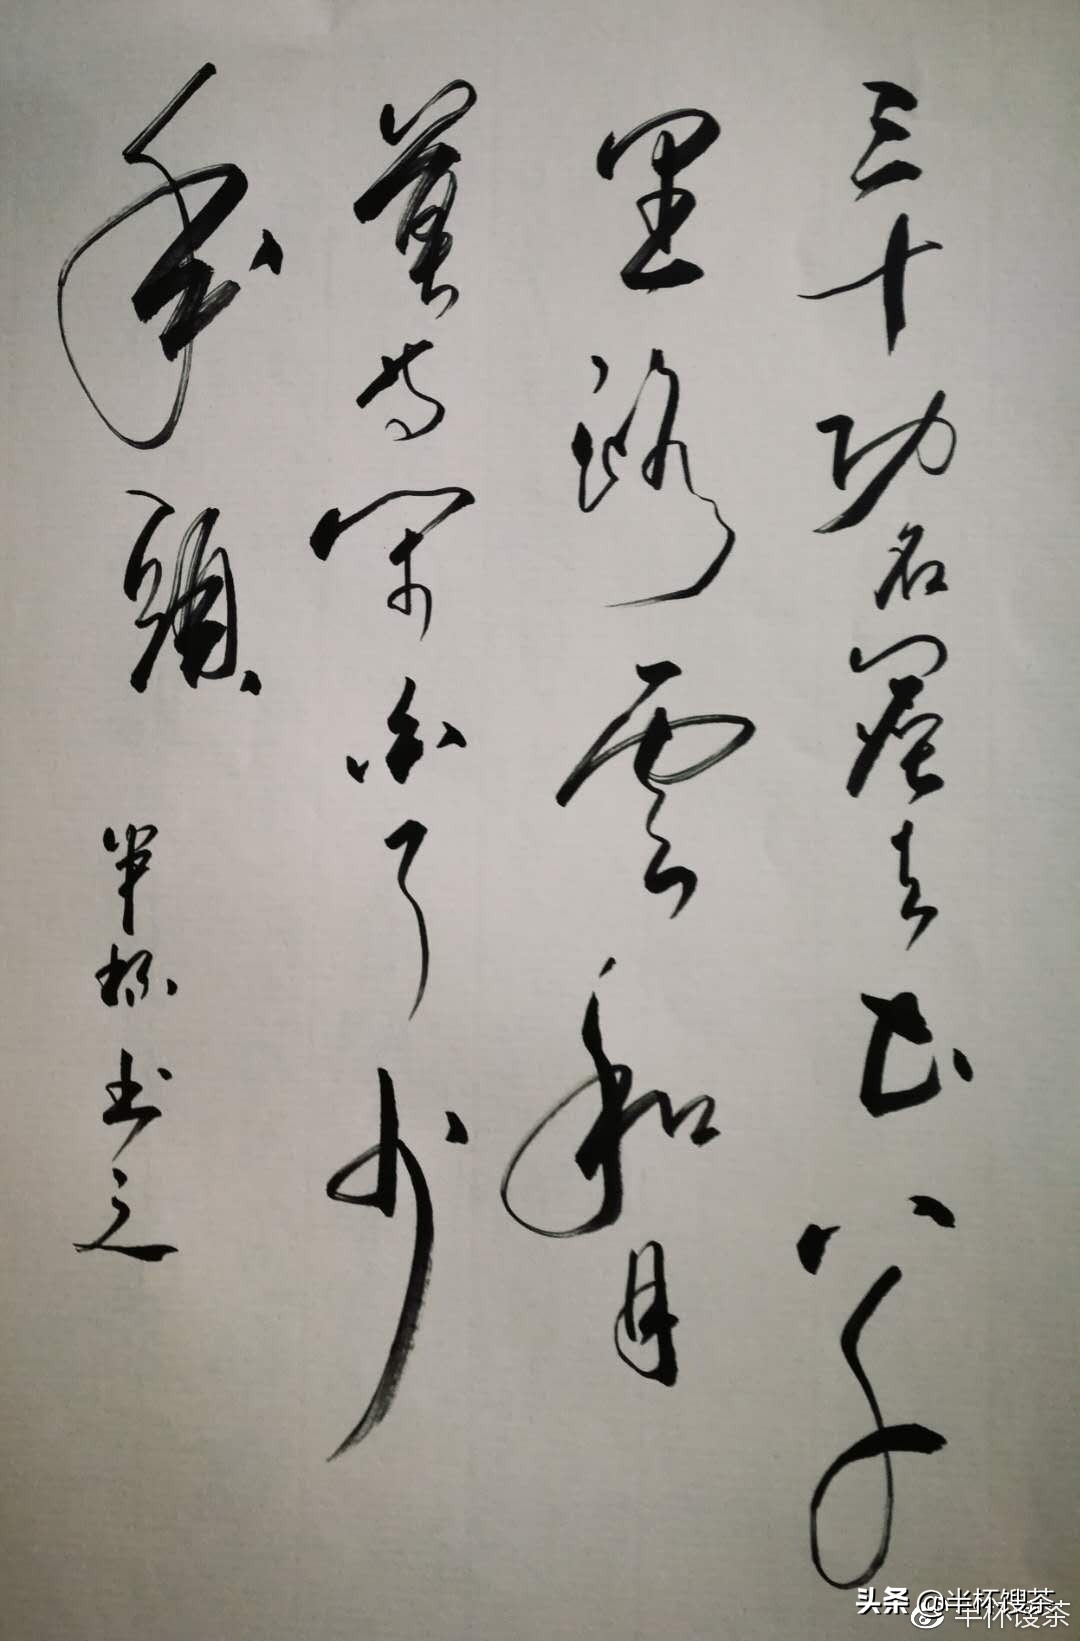 三十功名塵与土八千
里路雲和月
莫等閑白了少
年頭
半杯书之
头条 @半杯馊茶
@半杯馊茶